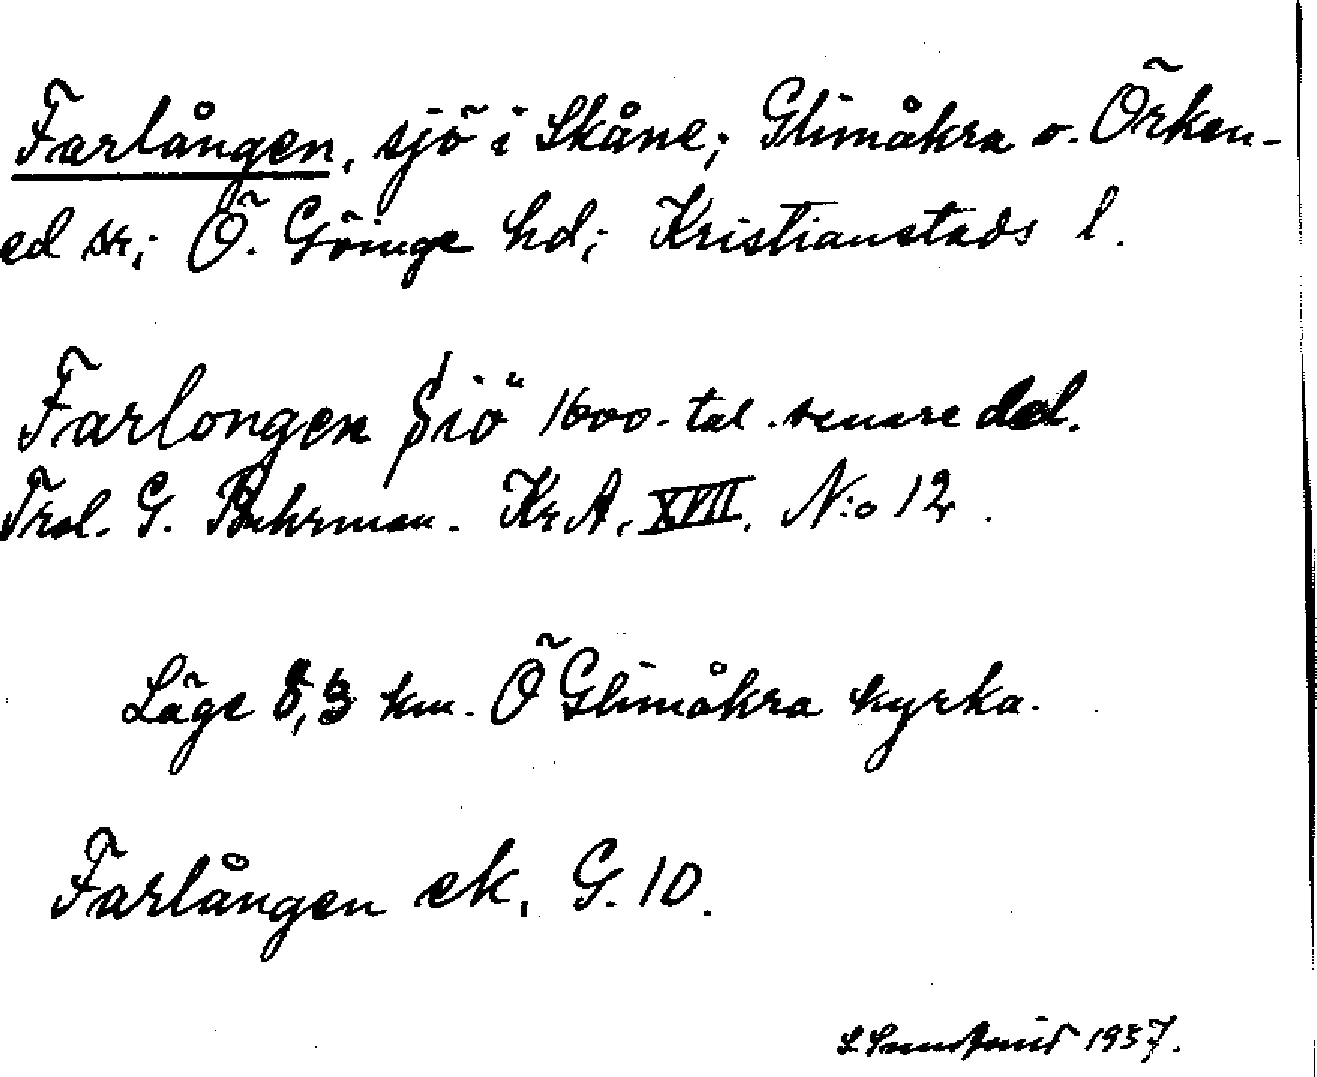 Farlången, sjö i Skåne; Glimåkra o. Örken-
ed sn; Ö. Göinge hd; Kristianstads l.
Farlongen Siö 1600-tal senare del.
Trol. G. Buhrman. Kr.A. XVII. N:o 12.
Läge 8,3 km. Ö Glimåkra kyrka.
Farlången ek. G. 10.
1937.